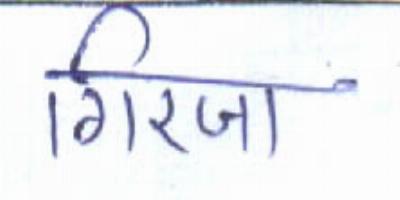 गिरजा